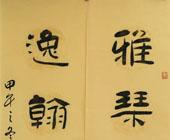 雅琴
逸翰
甲午之冬